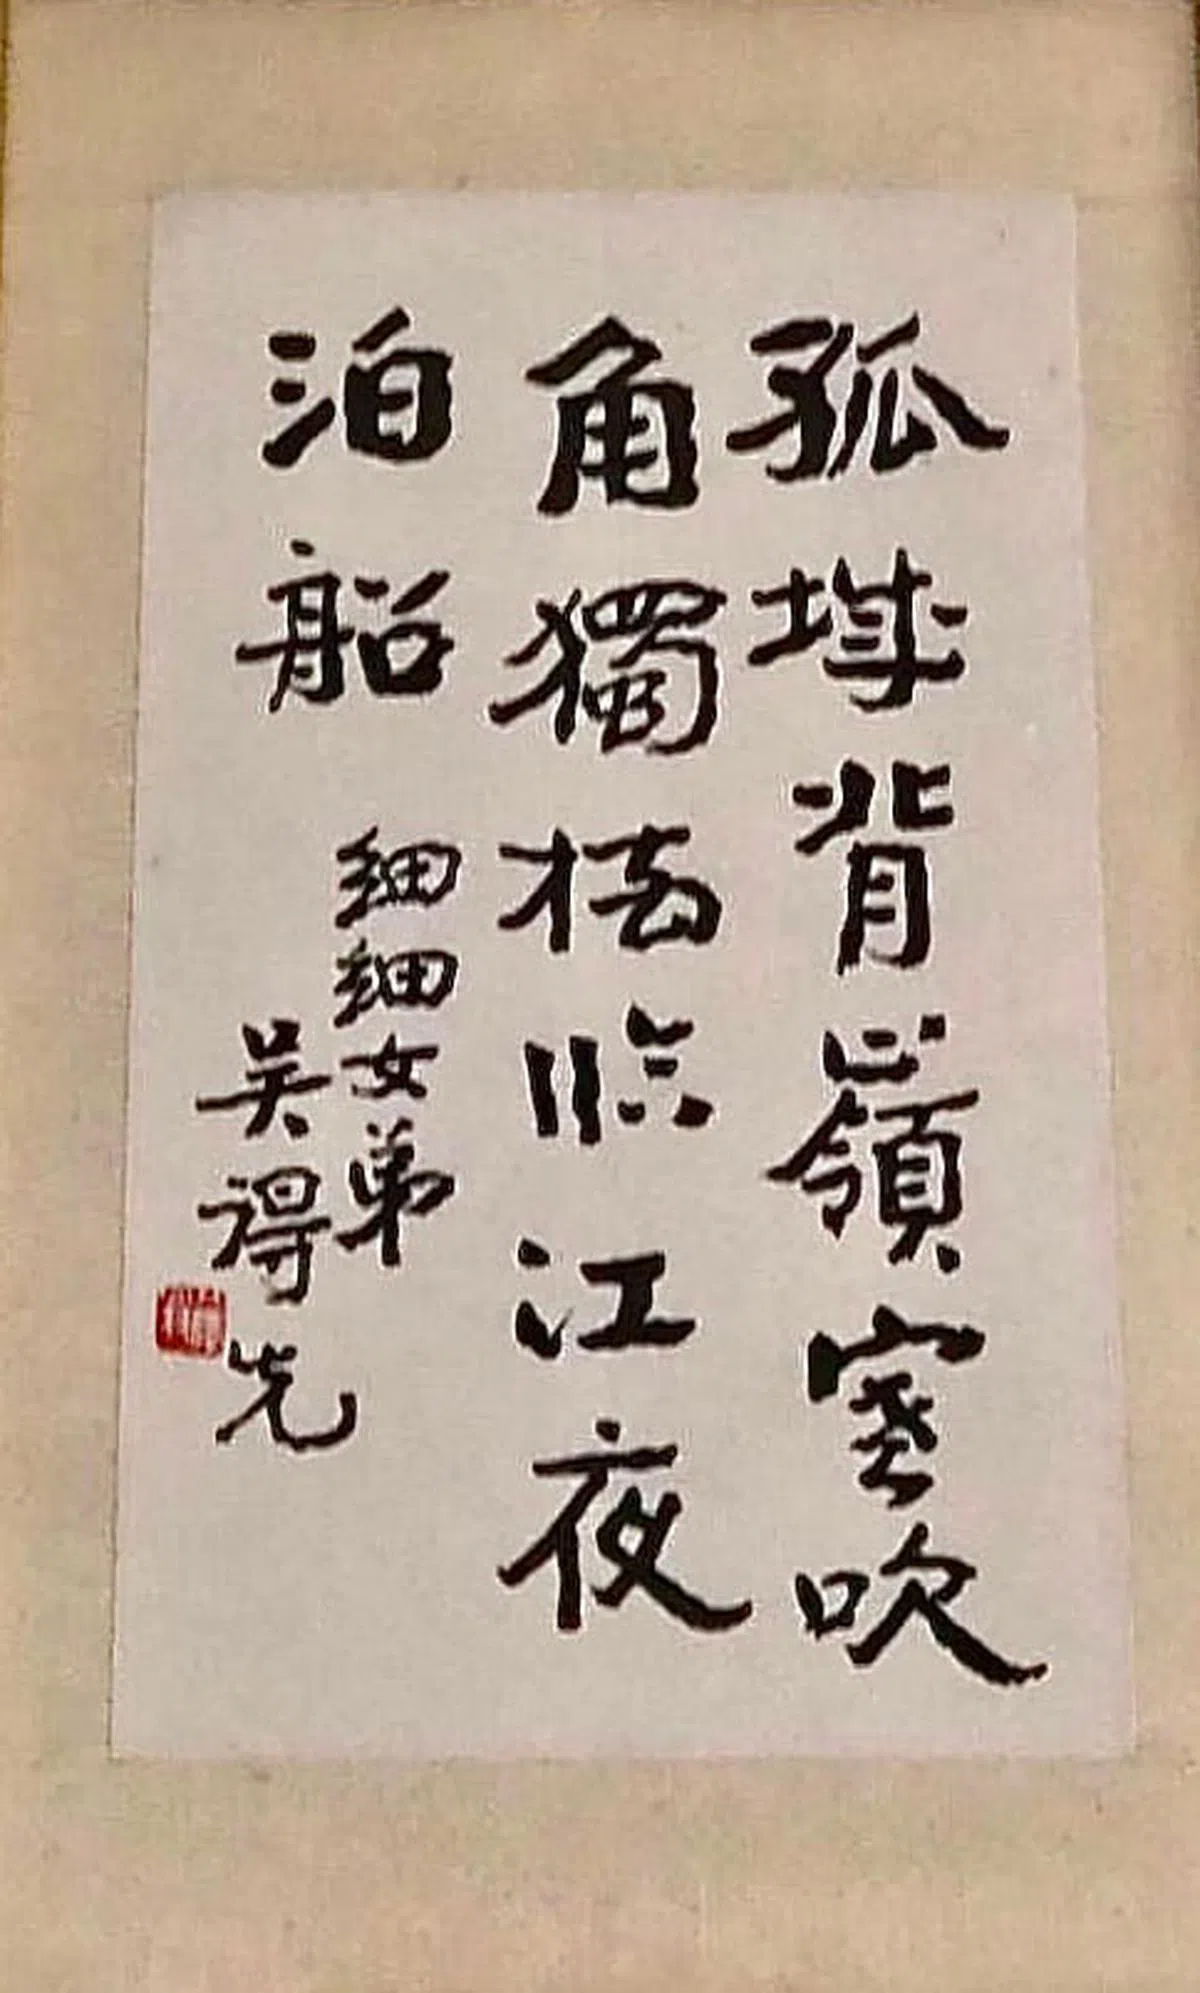 孤城背嶺寒吹
角獨樹臨江夜
泊船
細細女弟
吴得先